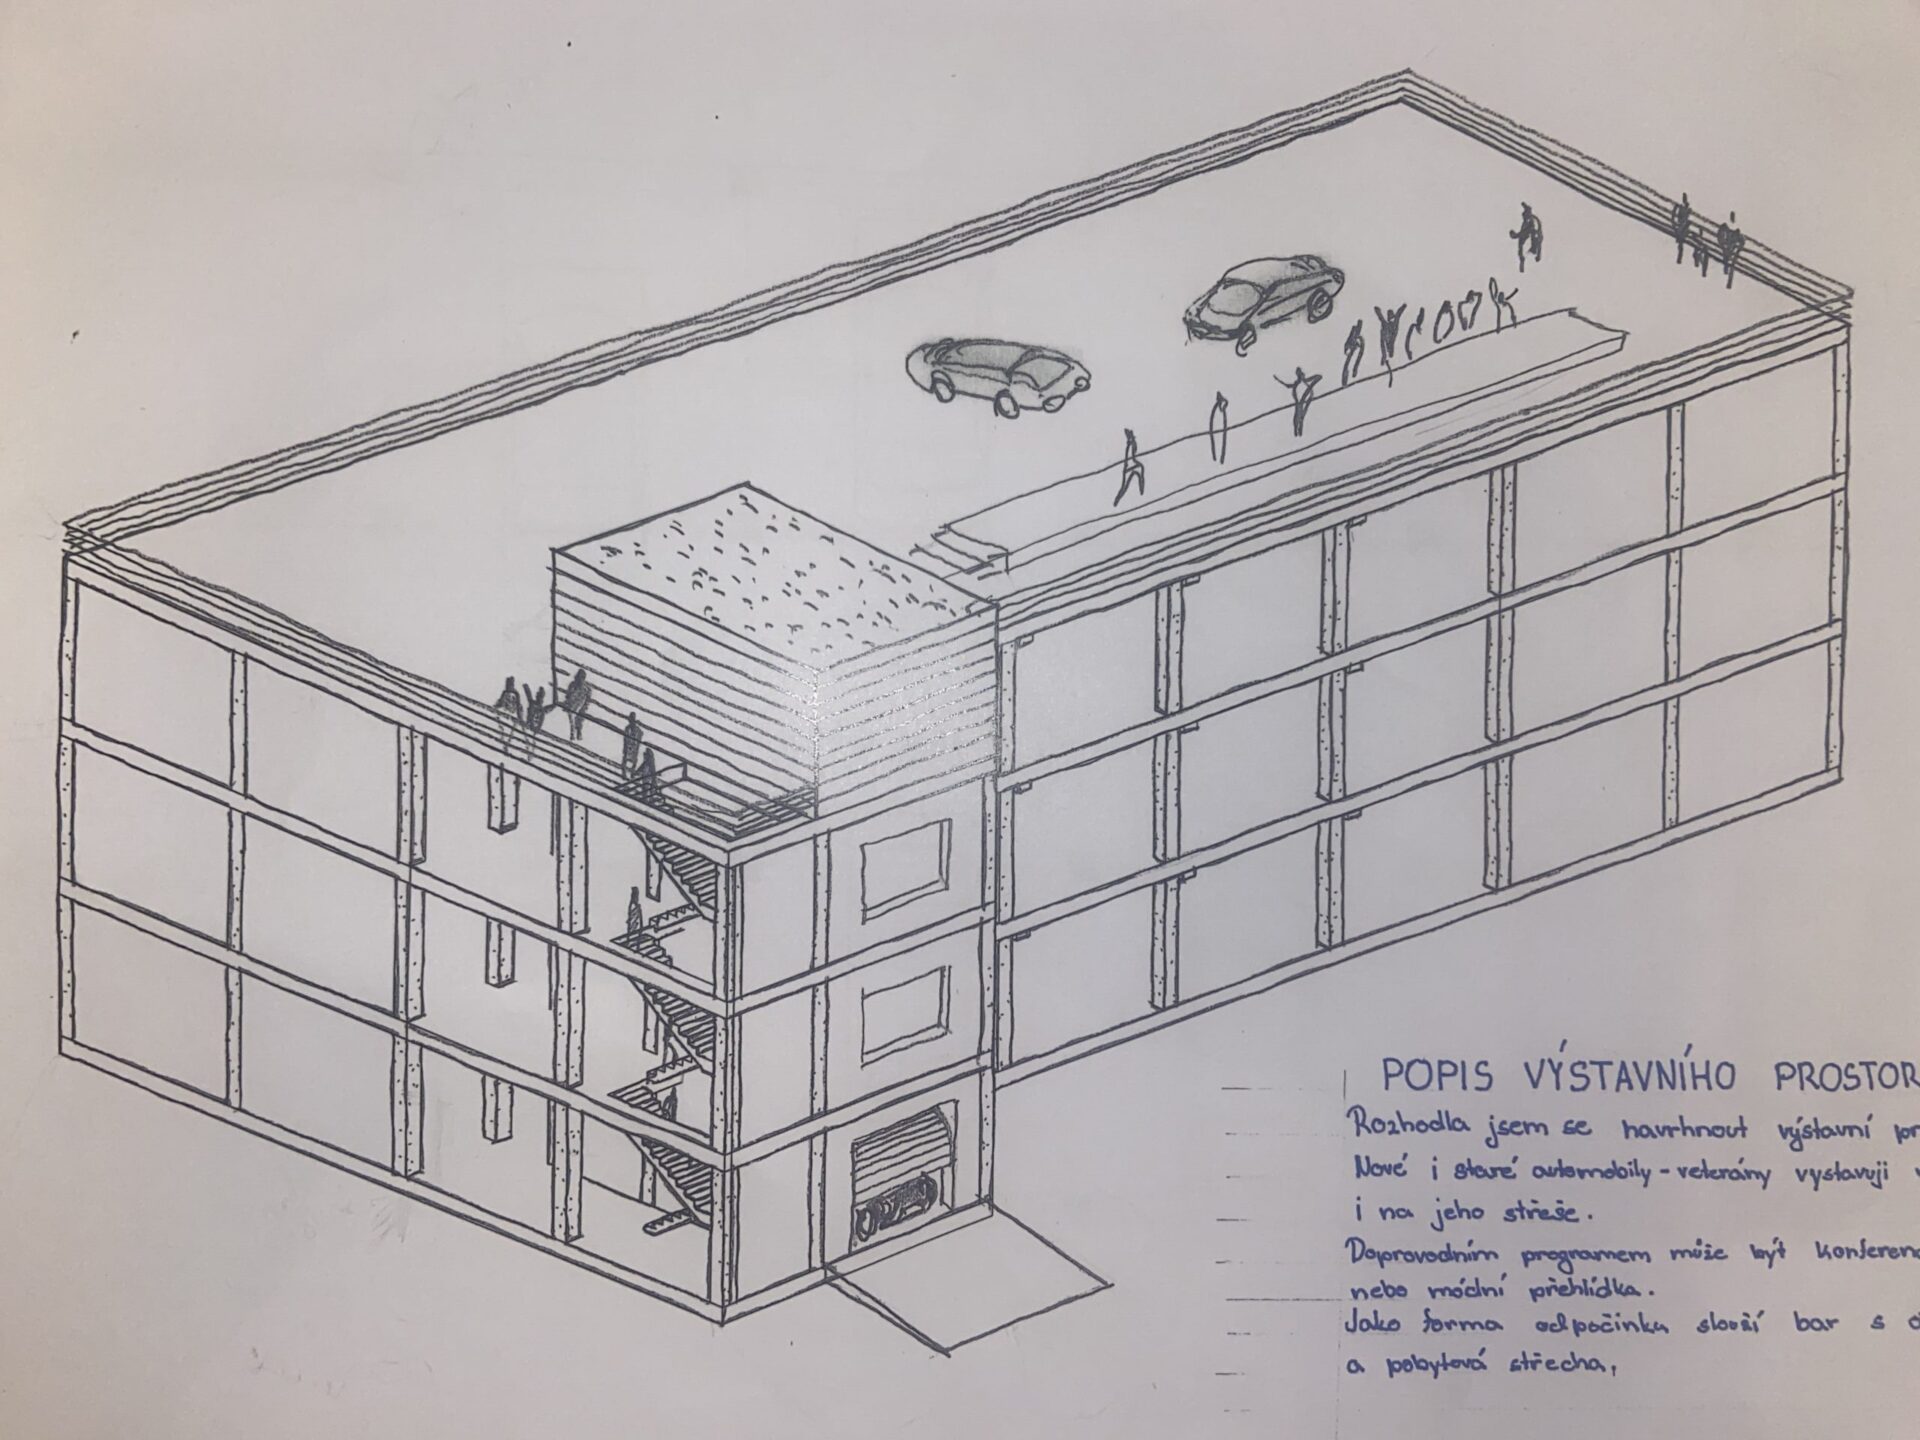 POPIS VÝSTAVNÍHO PROSTOR
Rozhodla jsem se navrhnout výstavní pr
Nové i staré automobily - veterány vystavuji v
i na jeho střeše.
Doprovodním programem může být konferenc
nebo módní přehlídka.
Jako forma odpočinku slouží bar s o
a pobytová střecha,